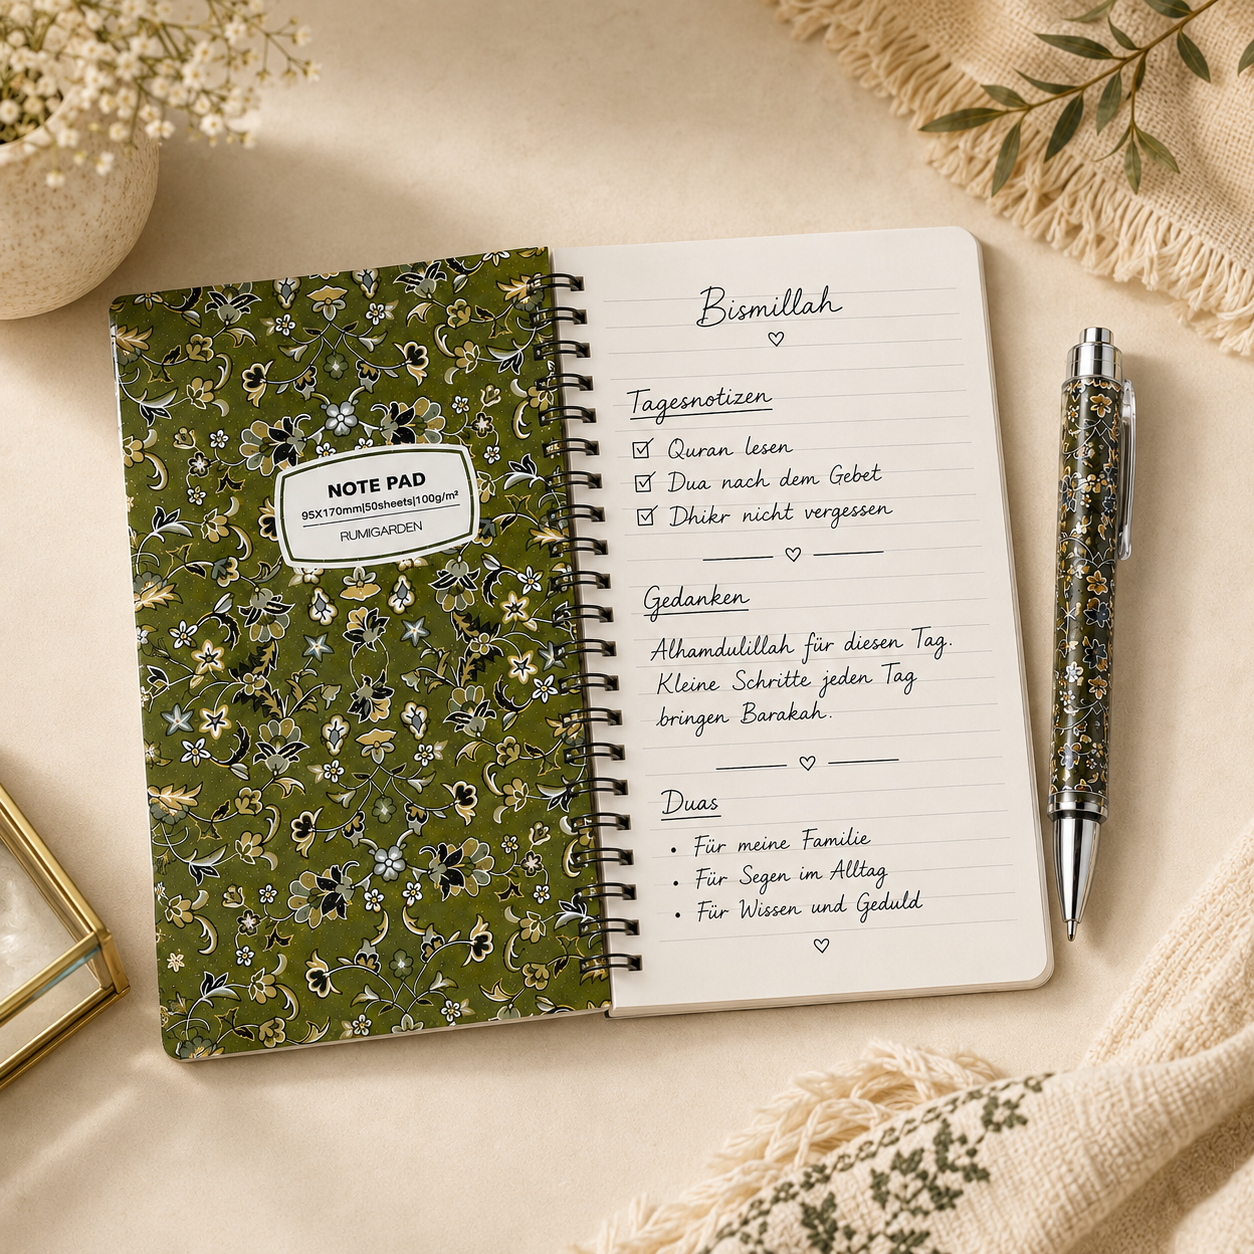 NOTE PAD
95X170mm|50sheets|100g/m²
RUMIGARDEN
Bismillah
Tagesnotizen
Quran lesen
Dua nach dem Gebet
Dhikr nicht vergessen
Gedanken
Alhamdulillah für diesen Tag.
Kleine Schritte jeden Tag
bringen Barakah.
Duas
• Für meine Familie
• Für Segen im Alltag
• Für Wissen und Geduld